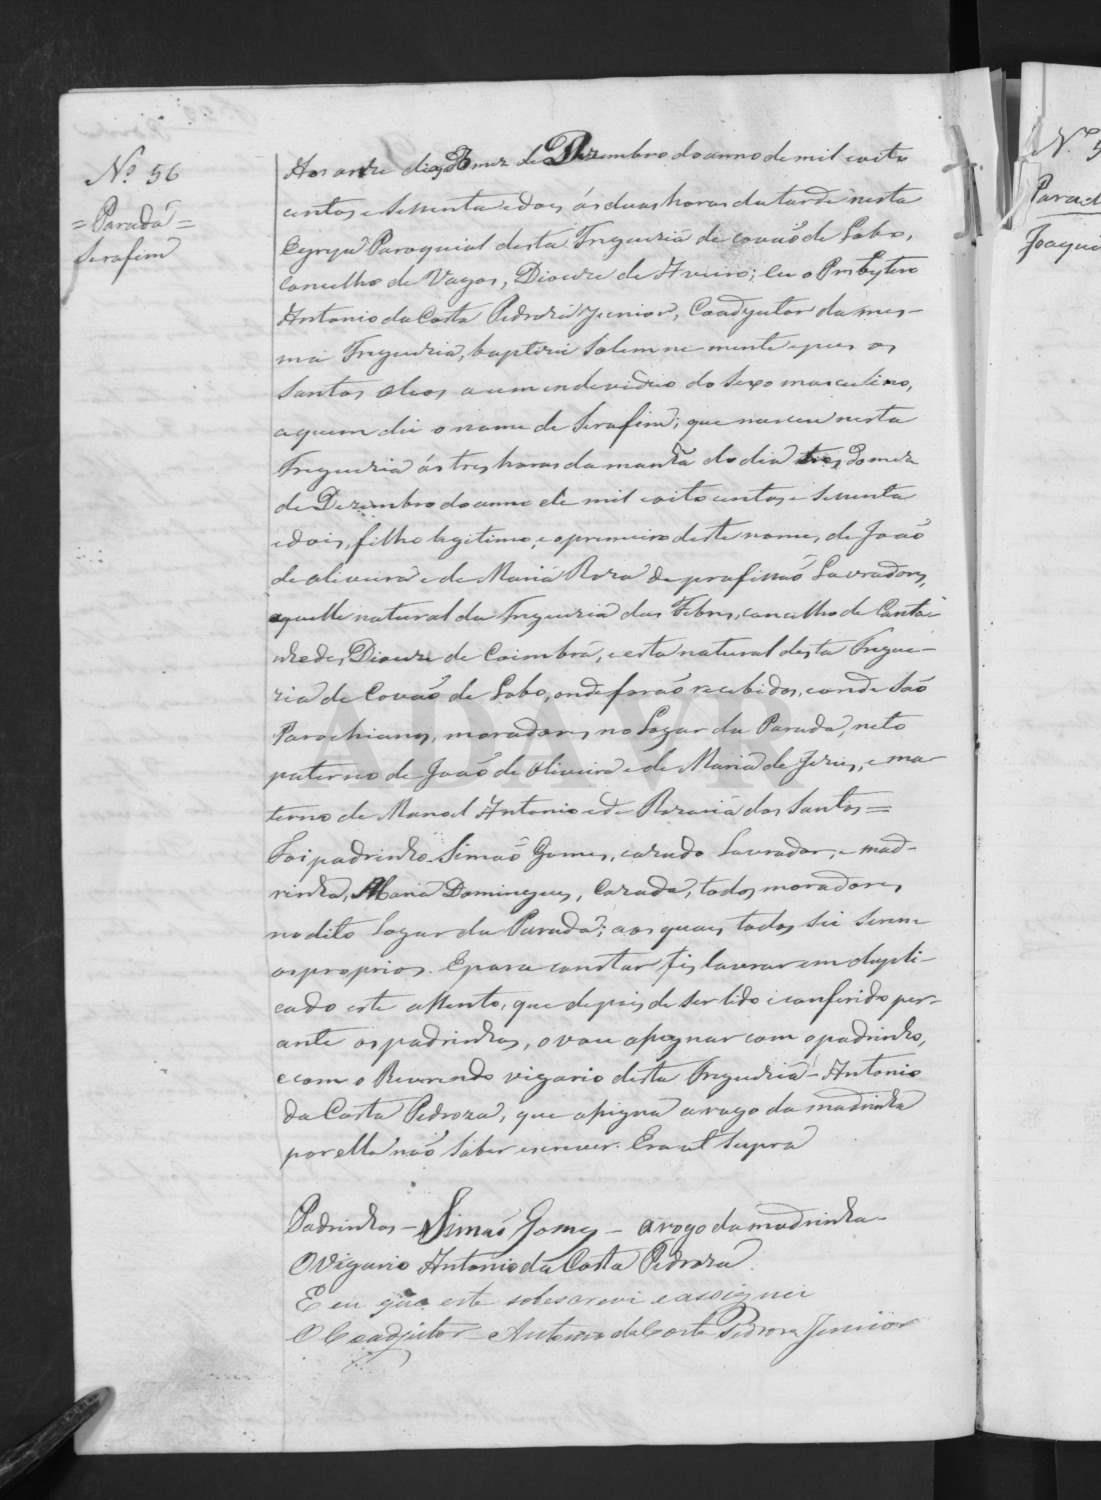 Nº 56
= Parada =
Serafim
Aos onze dias do mez de Dezembro do anno de mil oito
centos e sessenta e dois ás duas horas da tarde nesta
Egreja Paroquial desta Freguezia de Covaõ de Lobo,
Concelho de Vagos, Dioceze de Aveiro; Eu o Presbytero
Antonio da Costa Pedroza Junior, Coadjutor da mes-
ma Freguezia, baptizei solemnemente e puz os
Santos Oleos a um individuo do sexo masculino,
a quem dei o nome de Serafim; que nasceu nesta
Freguezia ás tres horas da manhã do dia tres do mez
de Dezembro do anno de mil oito centos e sessenta
e dois, filho legitimo, e o primeiro deste nome, de Joaõ
de Oliveira e de Maria Roza de profissaõ Lavradores,
aquelle natural da Freguezia das Febres, concelho de Canta-
nhede, Dioceze de Coimbra, e esta natural desta Fregue-
zia de Covaõ de Lobo, onde foraõ recebidos, e onde saõ
Parochianos, moradores no Logar da Parada, neto
paterno de Joaõ de Oliveira e de Maria de Jezus, e ma-
terno de Manoel Antonio e de Rozaria dos Santos =
Foi padrinho Simaõ Gomes, cazado Lavrador, e mad-
rinha, Maria Domingues, Cazada, todos moradores
no dito Logar da Parada; aos quaes todos sei serem
os proprios. E para constar fiz lavrar em dupli-
cado este assento, que depois de ser lido e conferido per-
ante os padrinhos, o vou assignar com o padrinho,
e com o Reverendo vigario desta Freguezia - Antonio
da Costa Pedroza, que assigna a rogo da madrinha
por ella naõ saber escrever. Era ut supra
Padrinhos - Simaõ Gomes - a rogo da madrinha -
O Vigario Antonio da Costa Pedroza.
E eu que este sobescrevi e assignei
O Coadjutor - Antonio da Costa Pedroza Junior
ADAVR
Nº 5
Parad
Joaqui